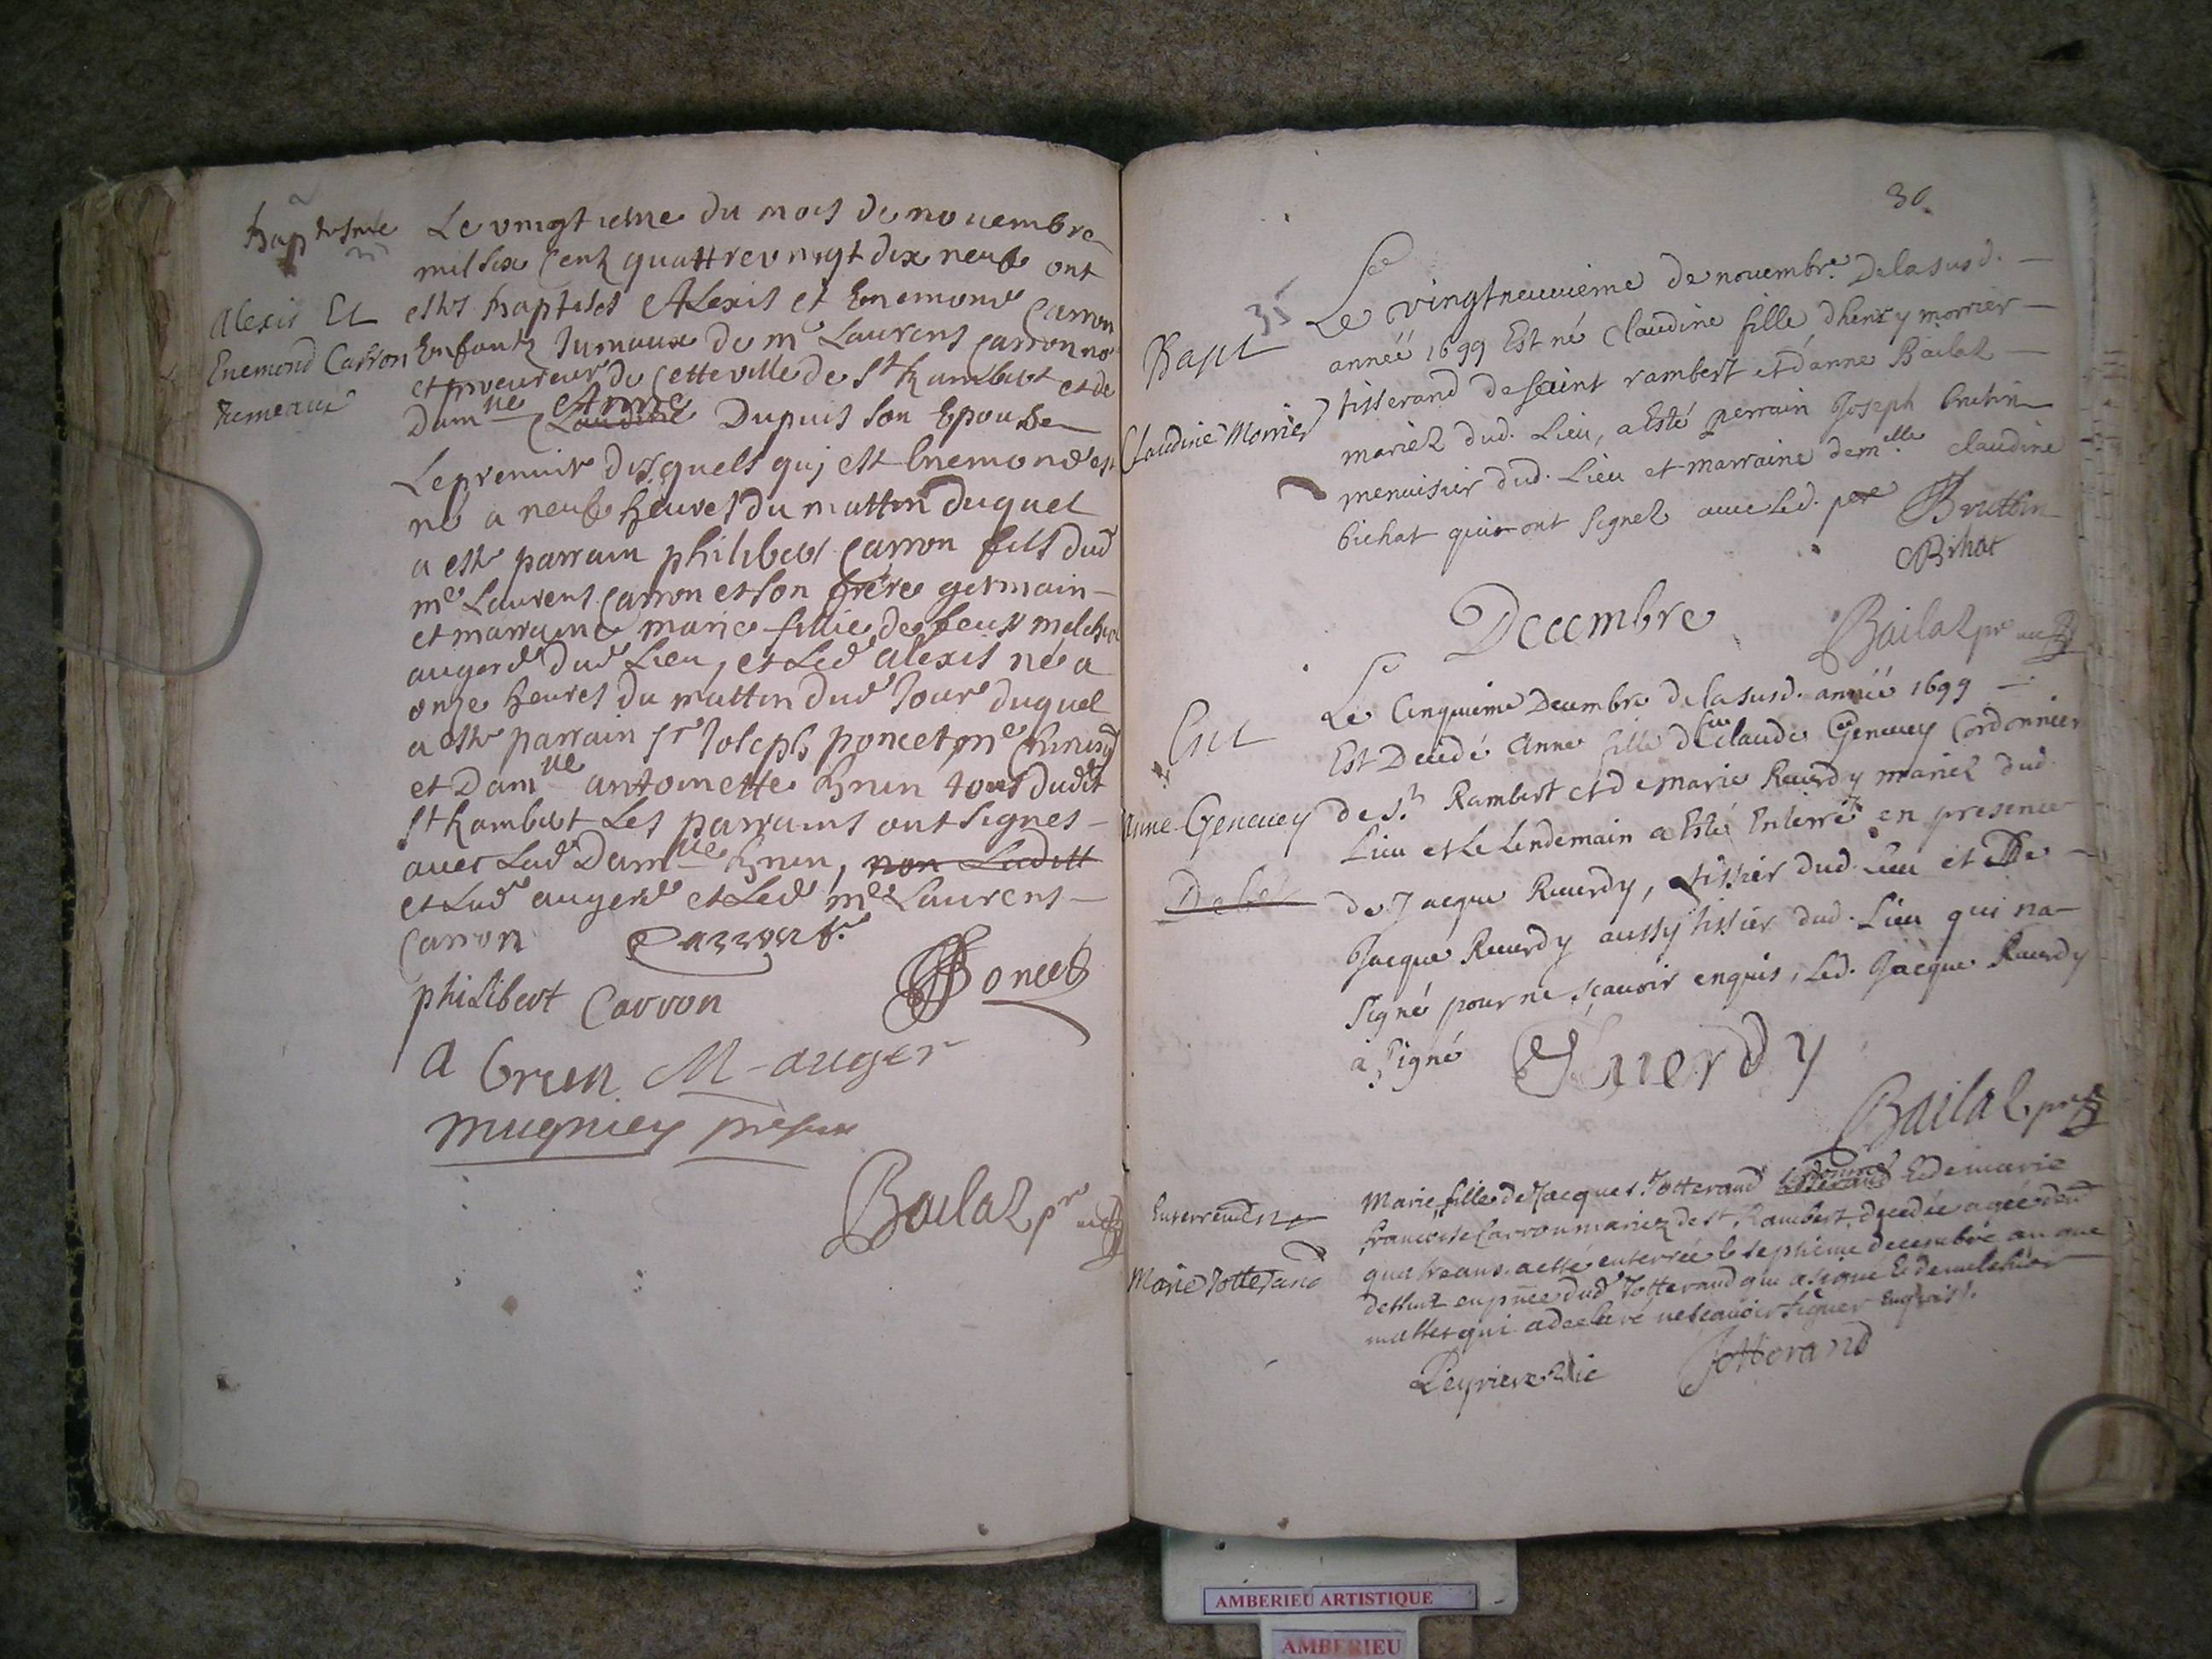 baptesme
Alexis Et
Enemond Carron
Jumeaux
Le vingtiesme du mois de novembre
mil six cent quattre vingt dix neuf ont
estes baptises Alexis et Enemond Carron
Enfants Jumaux de me Laurens Carron no
et procureur de cette ville de St Rambert et de
Damlle Claudine Anne Dupuis son Epouse
Le premier desquels qui est Enemond est
né a neuf heures du mattin duquel
a este parrain philibert Carron fils dud
me Laurens Carron et son frère germain
et marraine marie fillie de feu Sr melchior
augerd dud Lieu, et Led alexis né a
onze heures du mattin dud Jour duquel
a este parrain sr Joseph poncet me
et Damlle antoinette brun tous dudit
St Rambert Les parrains ont signes
avec Lad Damlle brun, non Laditt
et Lad augerd et Led me Laurens
Carron Carron
philibert Carron Poncet
a brun M auger
mugniey
Bailat pr
30
35
Bapt
Claudine Morrier
Le vingtneuvieme de novembre De la susd.
année 1699 Est né Claudine fille dhenry morrier
tisserand de saint rambert et d'anne Bailat
mariez dud. Lieu, a Esté perrain Joseph brutin
menuisier dud. Lieu et marraine demelle claudine
bichat qui ont signez avec Led. pere Bruttin
Bihat
Decembre
Bailat pr
Ent
Anne Genevey
Le Cinquieme Decembre de la susd. année 1699
Est Decedé anne fille de Claude Genevey Cordonnier
de St Rambert et de marie Ruerdy mariez dud.
Lieu et Le lendemain a Esté Enterré en presence
de Jacque Ruerdy, tissier dud. Lieu et De
Jacque Ruerdy aussy tissier dud. Lieu qui na
signé pour ne sçavoir enquis, Led. Jacque Ruerdy
a signé Ruerdy
Bailat pr
Enterrement
Marie Jotterand
Marie fille de Jacques Jotterand Et de marie
francoise Carron mariez de st Rambert, decedée agée denv
quatre ans. a esté enterrée le septième decembre an que
dessus en pnce dud Jotterand qui a signé Et de melchior
mattet qui a declaré ne scavoir signer Enquis.
Peyrieu vic Jotterand
AMBERIEU ARTISTIQUE
AMBERIEU